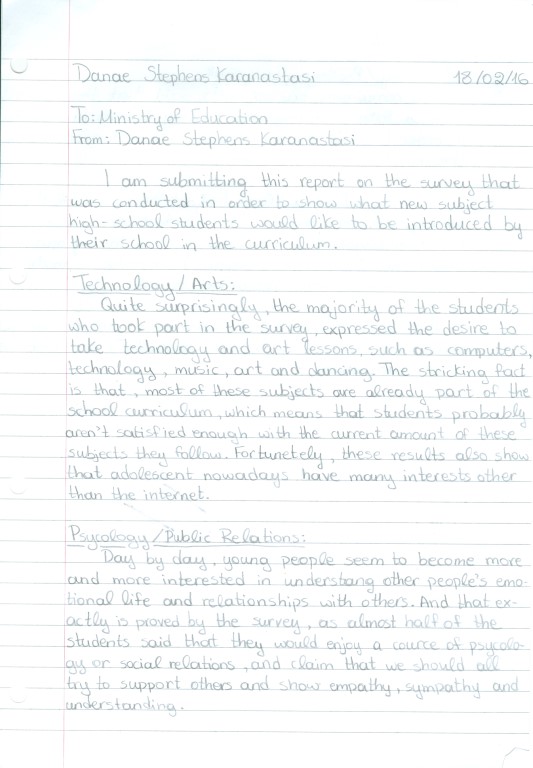 Danae Stephens Karanastasi 18/02/16
To: Ministry of Education
From: Danae Stephens Karanastasi
I am submitting this report on the survey that
was conducted in order to show what new subject
high-school students would like to be introduced by
their school in the curriculum.
Technology/Arts:
Quite surprisingly, the majority of the students
who took part in the survey, expressed the desire to
take technology and art lessons, such as computers,
technology, music, art and dancing. The stricking fact
is that, most of these subjects are already part of the
school curriculum, which means that students probably
aren't satisfied enough with the current amount of these
subjects they follow. Fortunetely, these results also show
that adolescent nowadays have many interests other
than the internet.
Psycology/Public Relations:
Day by day, young people seem to become more
and more interested in understang other people's emo-
tional life and relationships with others. And that ex-
actly is proved by the survey, as almost half of the
students said that they would enjoy a cource of psycolo-
gy or social relations, and claim that we should all
try to support others and show empathy, sympathy and
understanding.